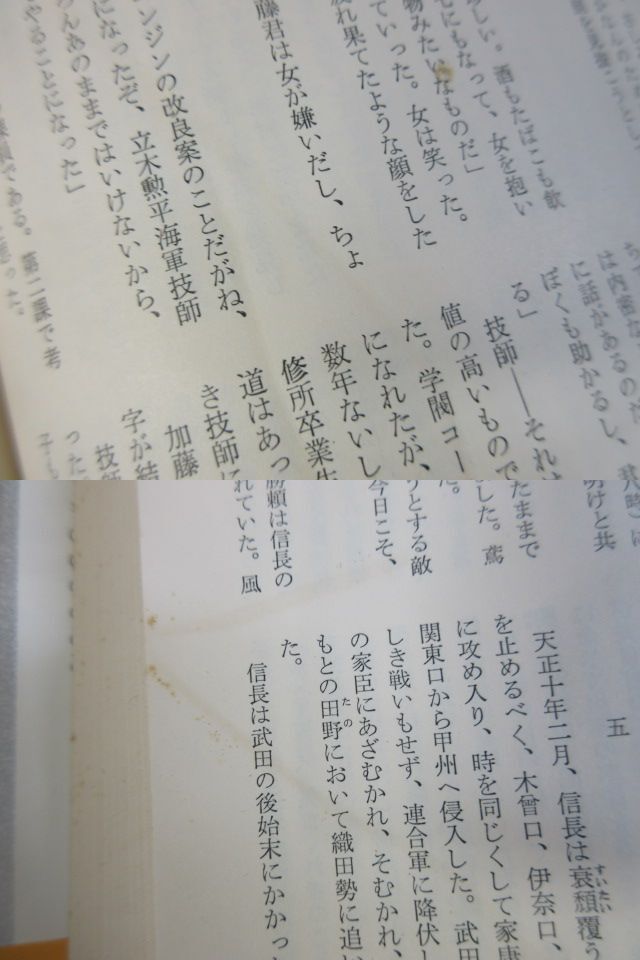 らしい。酒もたばこも飲
にもなって、女を抱い
物みたいなものだ」
ていった。女は笑った。
れ果てたような顔をした
藤君は女が嫌いだし、ちょ
ンジンの改良案のことだがね、
になったぞ、立木勲平海軍技師
ろんあのままではいけないから、
やることになった」
である。第二課で考
った。
は内密な
に話があるのだ
ぼくも助かるし、
る」
技師――それは
値の高いもので
た。学閥コー
になれたが、
数年ないし
修所卒業生
道はあっ
き技師に
加藤
字が結
技師
った
子も
明けと共
たままで
した。鳶
た。
うとする敵
今日こそ、
勝頼は信長の
れていた。風
五
天正十年二月、信長は衰頽覆う
すいたい
を止めるべく、木曾口、伊奈口、
に攻め入り、時を同じくして家康
関東口から甲州へ侵入した。武田
しき戦いもせず、連合軍に降伏し
の家臣にあざむかれ、そむかれ、
もとの田野において織田勢に追い
たの
た。
信長は武田の後始末にかかっ